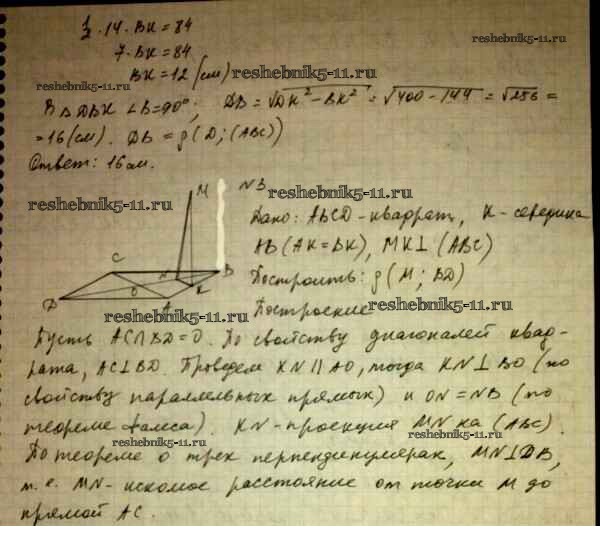 1/2·14·BK=84
7·BK=84
BK=12 (см) reshebnik5-11.ru
reshebnik5-11.ru
В ΔDBK ∠B=90°; DB=√DK²-BK²=√400-144=√256=
=16(см). DB=ρ(D;(ABC))
Ответ: 16см. reshebnik5-11.ru
M N3
reshebnik5-11.ru
Дано: ABCD-квадрат, K-середина
AB(AK=BK), MK⊥(ABC)
Построить: ρ(M; BD)
Построение reshebnik5-11.ru
C N B K D O A
Пусть AC∩BD=O. По свойству диагоналей квад-
рата, AC⊥BD. Проведем KN∥AO, тогда KN⊥BO (по
свойству параллельных прямых) и ON=NB (по
reshebnik5-11.ru
теореме Фалеса). KN-проекция MN на (ABC).
reshebnik5-11.ru reshebnik5-11.ru
По теореме о трех перпендикулярах, MN⊥DB,
т.е. MN-искомое расстояние от точки M до
прямой AC. reshebnik5-11.ru